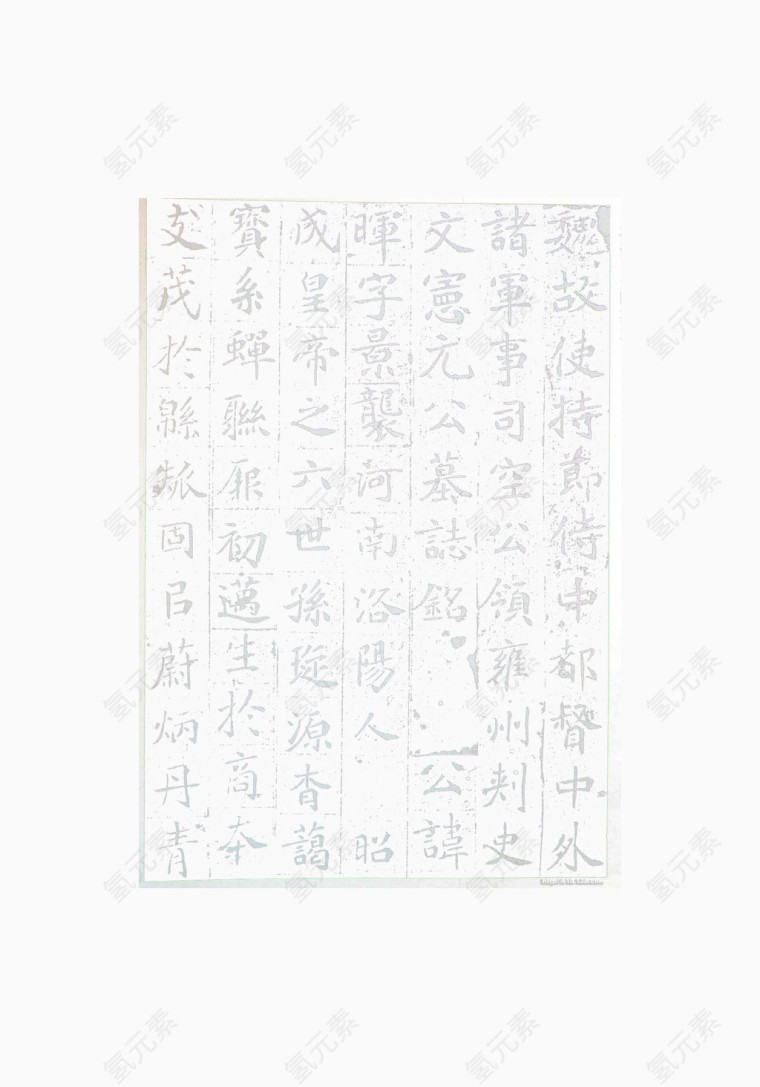 魏故使持節侍中都督中外
諸軍事司空公領雍州刾史
文憲元公墓誌銘 公諱
暉字景襲河南洛陽人 昭
成皇帝之六世孫琁源杳藹
寶系蟬聯厥初邁生於商夲
支茂於緜瓞固㠯蔚炳丹青
氫元素